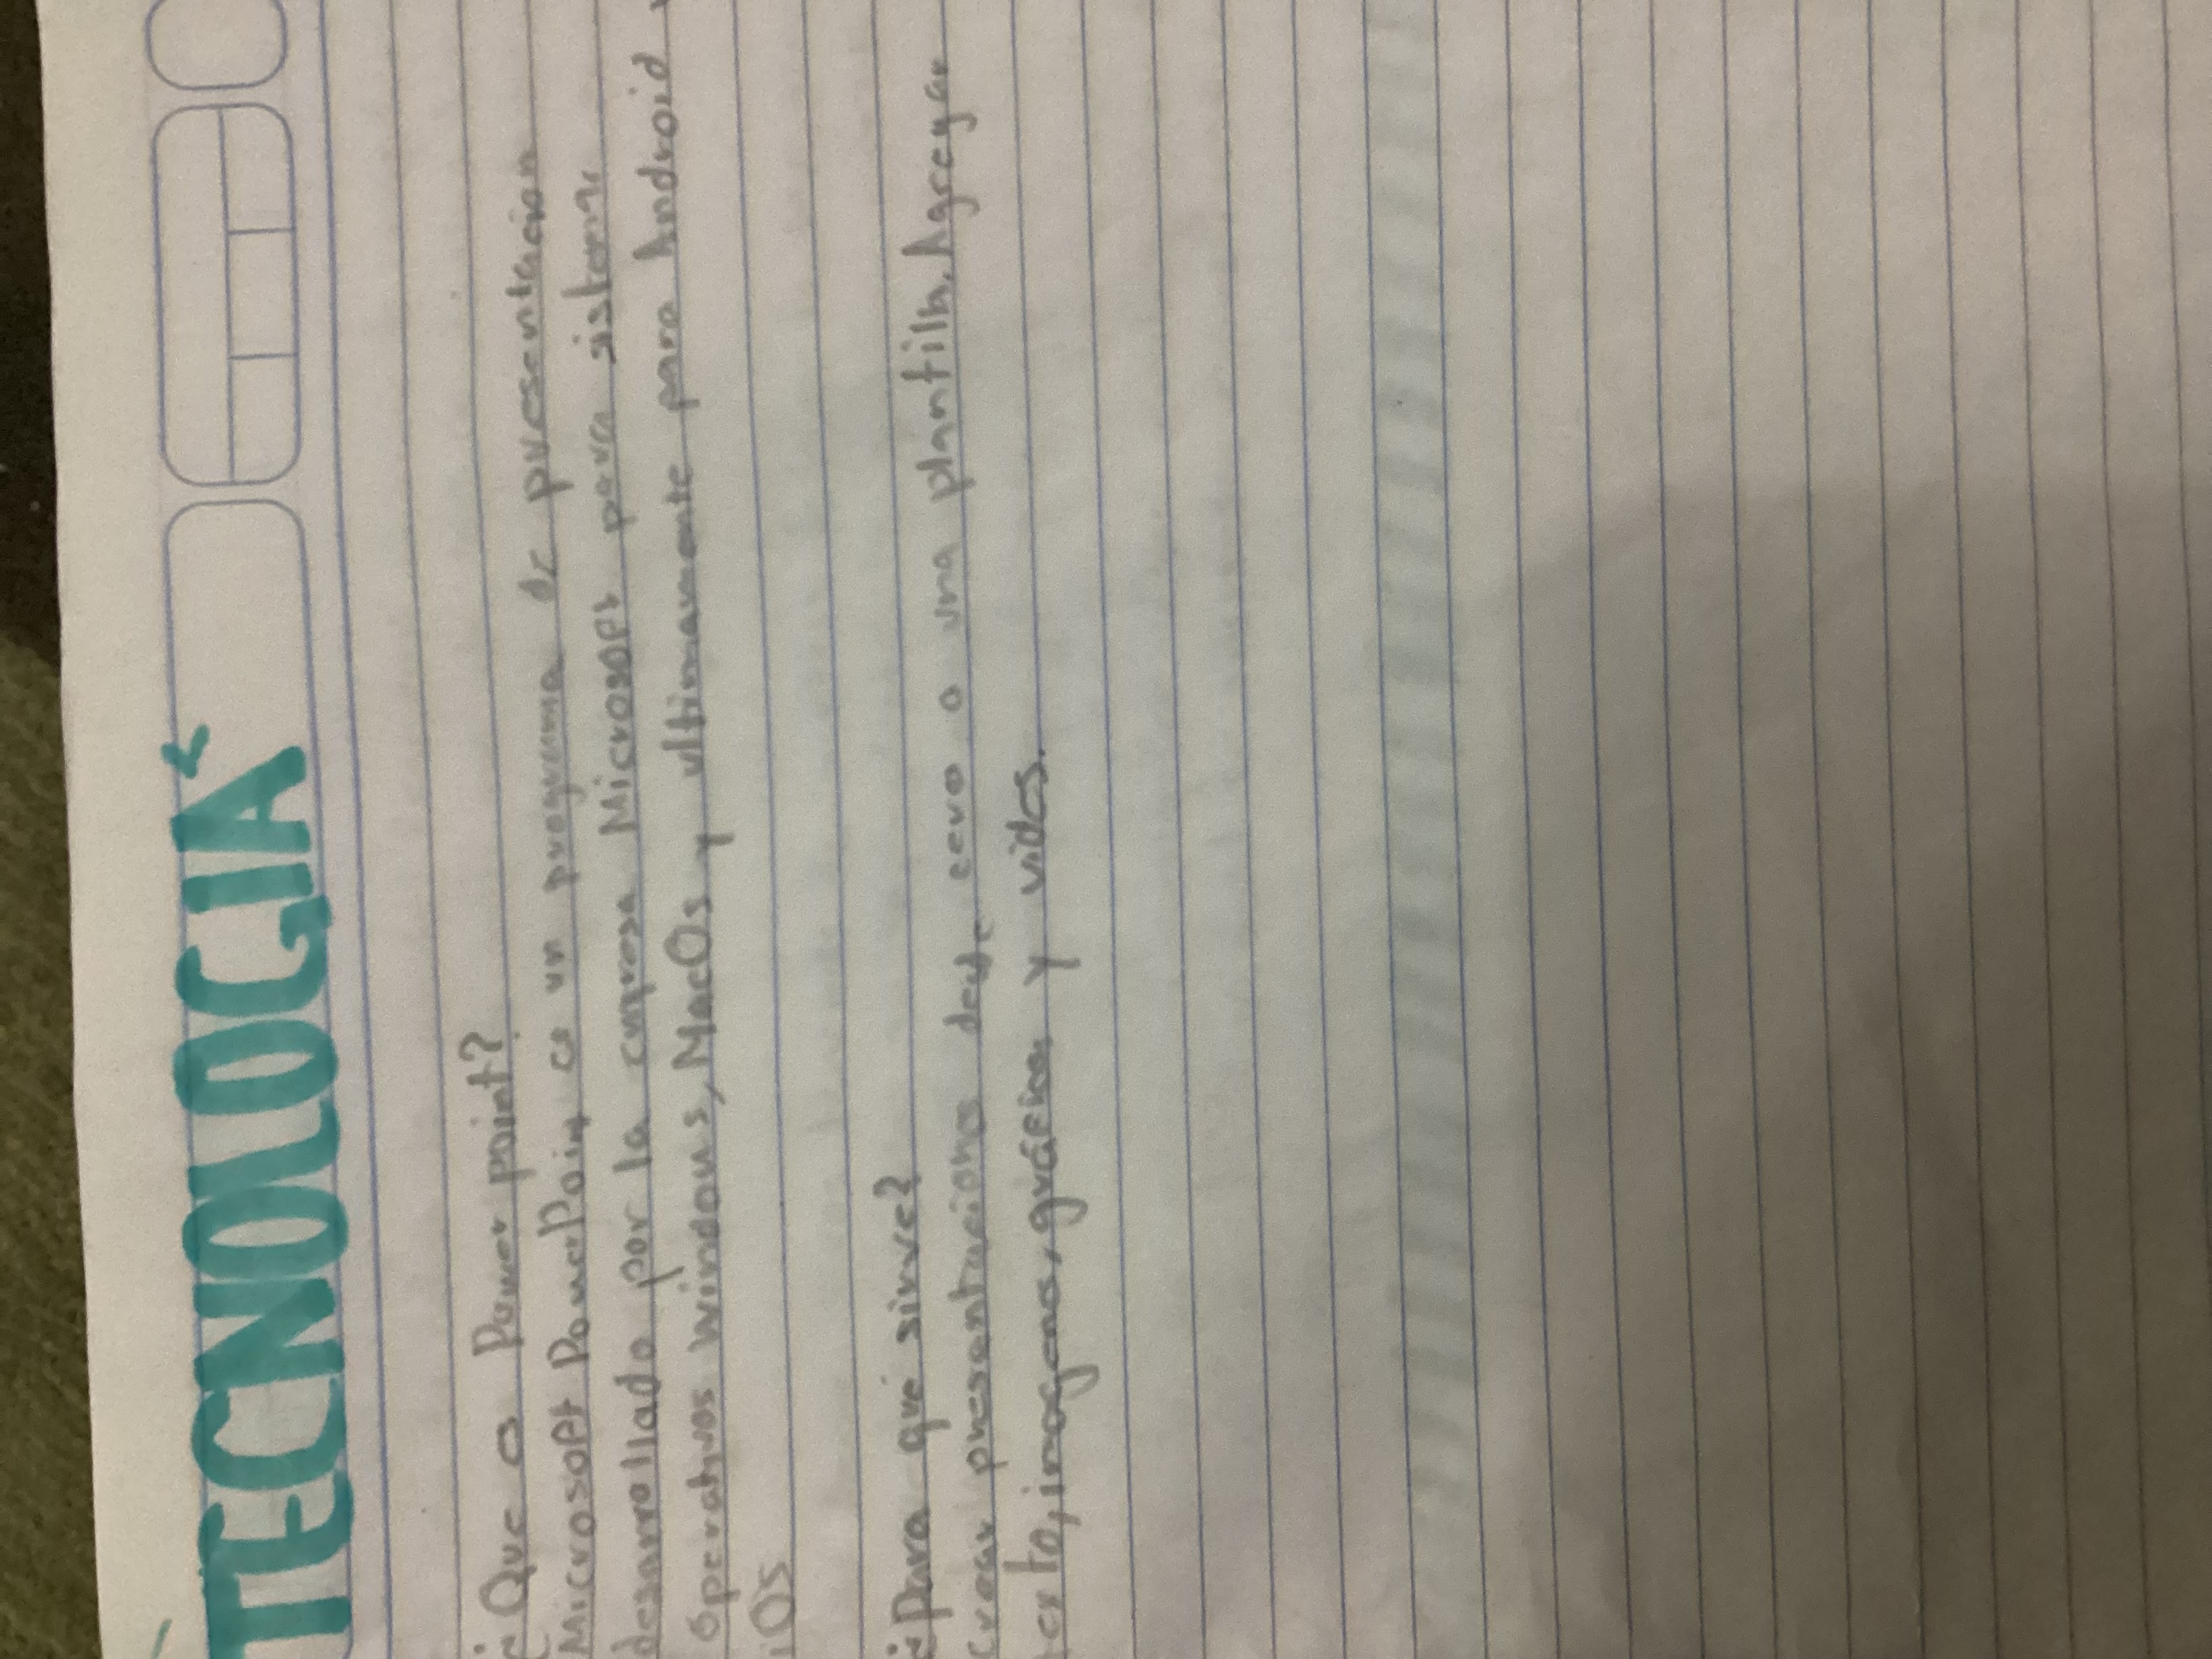 TECNOLOGIA
¿Que es Power point?
Microsoft PowerPoint es un programa de presentacion
desarrollado por la empresa Microsoft para sistema
operativos Windows, MacOs y ultimamente para Android y
iOS
¿Para qué sirve?
Crear presentaciones desde cero o una plantilla. Agregar
texto, imagenes, gráficos y vides.